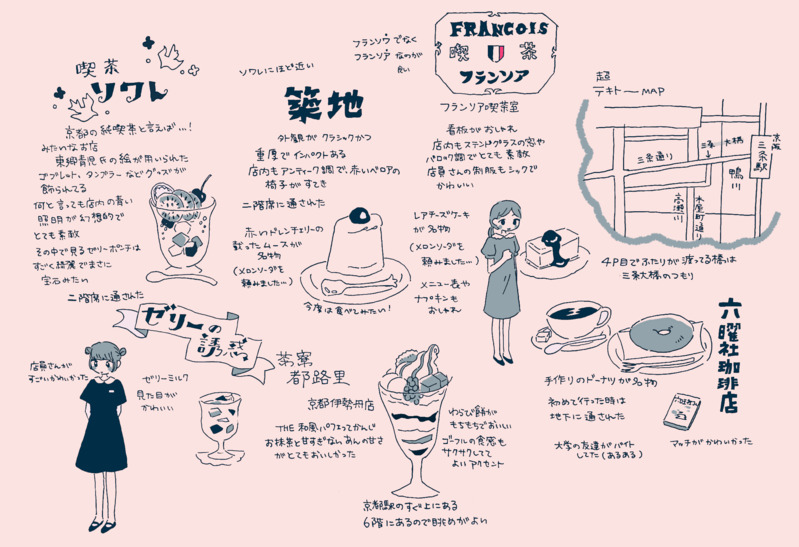 喫茶
ソワレ
京都の純喫茶と言えば…!
みたいなお店
東郷青児氏の絵が用いられた
ゴブレット、タンブラーなどグッズが
飾られてる
何と言っても店内の青い
照明が幻想的で
とても素敵
その中で見るゼリーポンチは
すごく綺麗でまさに
宝石みたい
二階席に通された
ソワレにほど近い
築地
外観がクラシックかつ
重厚でインパクトある
店内もアンティーク調で、赤いベロアの
椅子がすてき
二階席に通された
赤いドレンチェリーの
載ったムースが
名物
(メロンソーダを
頼みました…)
今度は食べてみたい!
フランソウでなく
フランソアなのが
良い
FRANCOIS
喫茶
フランソア
フランソア喫茶室
看板がおしゃれ
店内もステンドグラスの窓や
バロック調でとても素敵
店員さんの制服もシックで
かわいい
レアチーズケーキ
が名物
(メロンソーダを
頼みました…)
メニュー表や
ナプキンも
おしゃれ
超
テキトーMAP
三条通り
三条大橋
鴨川
京阪
三条駅
高瀬川
木屋町通り
4P目でふたりが渡ってる橋は
三条大橋のつもり
六曜社珈琲店
手作りのドーナツが名物
初めて行った時は
地下に通された
大学の友達がバイト
してた(あるある)
マッチがかわいかった
ゼリーの
誘惑
店員さんが
すごいかわいかった
ゼリーミルク
見た目が
かわいい
茶寮
都路里
京都伊勢丹店
THE 和風パフェってかんじ
お抹茶と甘すぎないあんの甘さ
がとてもおいしかった
わらび餅が
もちもちでおいしい
ゴーフルの食感も
サクサクしてて
よいアクセント
京都駅のすぐ上にある
6階にあるので眺めがよい